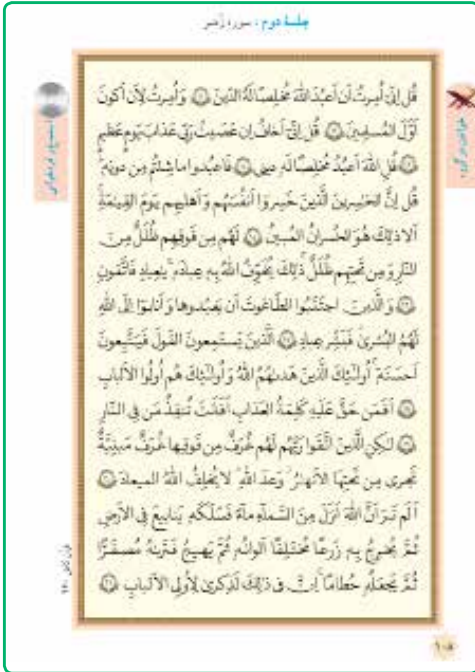 جلسهٔ دوم : سورهٔ زُمَر
قُل اِنّی اُمِرتُ اَن اَعبُدَ اللهَ مُخلِصًا لَهُ الدّینَ ۝۱۱ وَ اُمِرتُ لِاَن اَکونَ
اَوَّلَ المُسلِمینَ ۝۱۲ قُل اِنّی اَخافُ اِن عَصَیتُ رَبّی عَذابَ یَومٍ عَظیمٍ
۝۱۳ قُلِ اللهَ اَعبُدُ مُخلِصًا لَهو دینی ۝۱۴ فَاعبُدوا ما شِئتُم مِن دونِه
قُل اِنَّ الخٰسِرینَ الَّذینَ خَسِروا اَنفُسَهُم وَ اَهلیهِم یَومَ القِیٰمَةِ
اَلا ذٰلِکَ هُوَ الخُسرانُ المُبینُ ۝۱۵ لَهُم مِن فَوقِهِم ظُلَلٌ مِنَ
النّارِ وَ مِن تَحتِهِم ظُلَلٌ ذٰلِکَ یُخَوِّفُ اللهُ بِه عِبادَهو یٰعِبادِ فَاتَّقونِ
۝۱۶ وَ الَّذینَ اجتَنَبُوا الطّاغوتَ اَن یَعبُدوها وَ اَنابوا اِلَی اللهِ
لَهُمُ البُشریٰ فَبَشِّر عِبادِ ۝۱۷ اَلَّذینَ یَستَمِعونَ القَولَ فَیَتَّبِعونَ
اَحسَنَهو اُولٰئِکَ الَّذینَ هَدٰىهُمُ اللهُ وَ اُولٰئِکَ هُم اُولُوا الاَلبابِ
۝۱۸ اَفَمَن حَقَّ عَلَیهِ کَلِمَةُ العَذابِ اَفَاَنتَ تُنقِذُ مَن فِی النّارِ
۝۱۹ لٰکِنِ الَّذینَ اتَّقَوا رَبَّهُم لَهُم غُرَفٌ مِن فَوقِها غُرَفٌ مَبنِیَّةٌ
تَجری مِن تَحتِهَا الاَنهارُ وَعدَ اللهِ لا یُخلِفُ اللهُ المیعادَ ۝۲۰
اَلَم تَرَ اَنَّ اللهَ اَنزَلَ مِنَ السَّماءِ ماءً فَسَلَکَهو یَنابیعَ فِی الاَرضِ
ثُمَّ یُخرِجُ بِه زَرعًا مُختَلِفًا اَلوانُهو ثُمَّ یَهیجُ فَتَرٰىهُ مُصفَرًّا
ثُمَّ یَجعَلُهو حُطامًا اِنَّ فی ذٰلِکَ لَذِکریٰ لِاُولِی الاَلبابِ ۝۲۱
۱۰۸